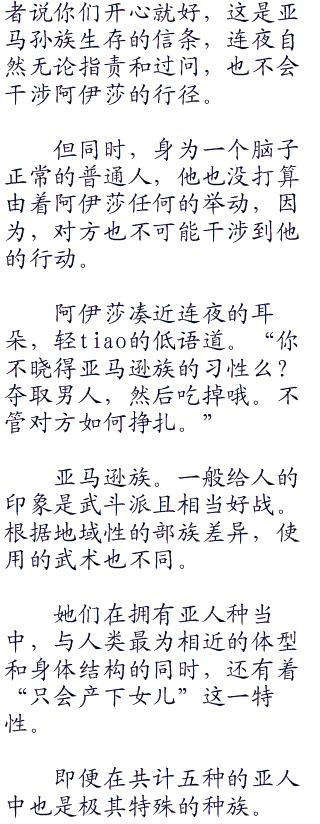 者说你们开心就好，这是亚
马孙族生存的信条，连夜自
然无论指责和过问，也不会
干涉阿伊莎的行径。
但同时，身为一个脑子
正常的普通人，他也没打算
由着阿伊莎任何的举动，因
为，对方也不可能干涉到他
的行动。
阿伊莎凑近连夜的耳
朵，轻tiao的低语道。“你
不晓得亚马逊族的习性么？
夺取男人，然后吃掉哦。不
管对方如何挣扎。”
亚马逊族。一般给人的
印象是武斗派且相当好战。
根据地域性的部族差异，使
用的武术也不同。
她们在拥有亚人种当
中，与人类最为相近的体型
和身体结构的同时，还有着
“只会产下女儿”这一特
性。
即便在共计五种的亚人
中也是极其特殊的种族。